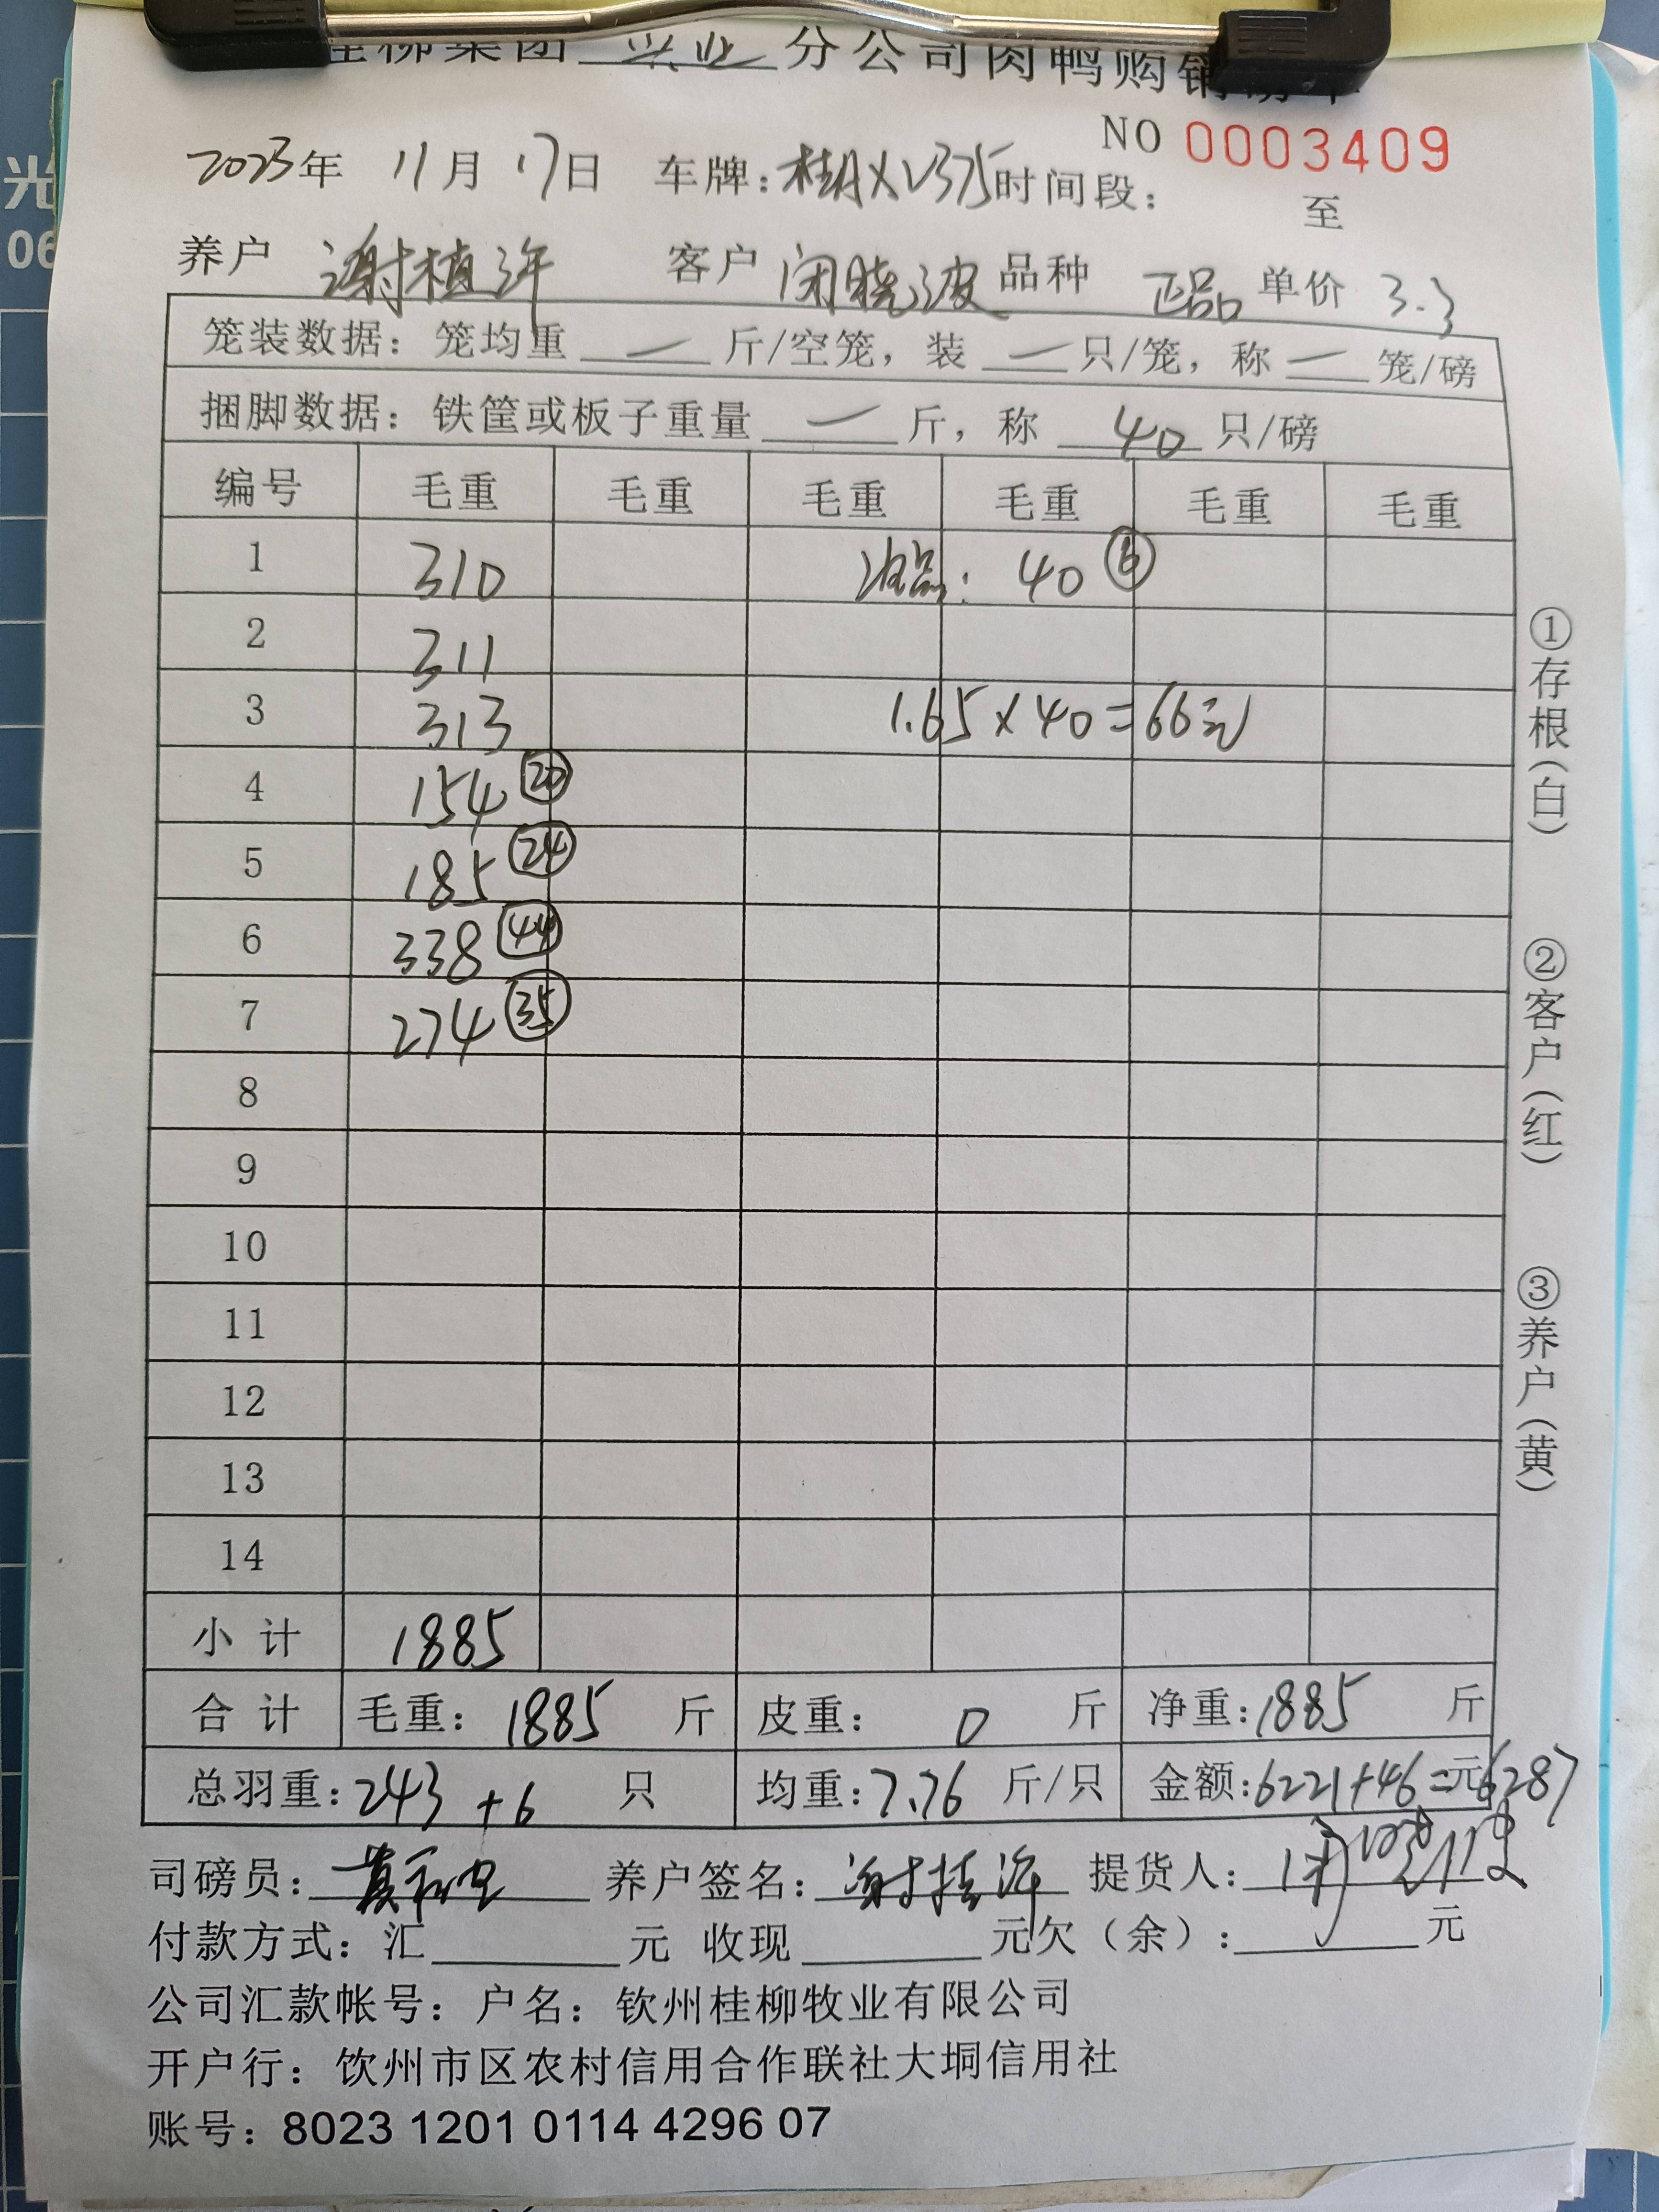 桂柳集团 兴业 分公司肉鸭购销磅单
NO 0003409
2023年 11月 17日 车牌:桂AXV375时间段: 至
养户 谢植许 客户 闭晓波 品种 正品 单价 3.3
笼装数据:笼均重 — 斤/空笼,装 — 只/笼,称 — 笼/磅
捆脚数据:铁筐或板子重量 — 斤,称 40 只/磅
编号 毛重 毛重 毛重 毛重 毛重 毛重
1 310 油品: 40 ⑥
2 311
3 313 1.65×40=66元
4 154 ⑳
5 185 ㉔
6 338 ㊹
7 274 ㉟
8
9
10
11
12
13
14
小计 1885
合计 毛重: 1885 斤 皮重: 0 斤 净重:1885 斤
总羽重:243+6 只 均重:7.76 斤/只 金额:6221+46=元6287
司磅员: 养户签名: 提货人:
付款方式:汇 元 收现 元欠(余): 元
公司汇款帐号:户名:钦州桂柳牧业有限公司
开户行:饮州市区农村信用合作联社大垌信用社
账号:8023 1201 0114 4296 07
①存根(白)
②客户(红)
③养户(黄)
光
06